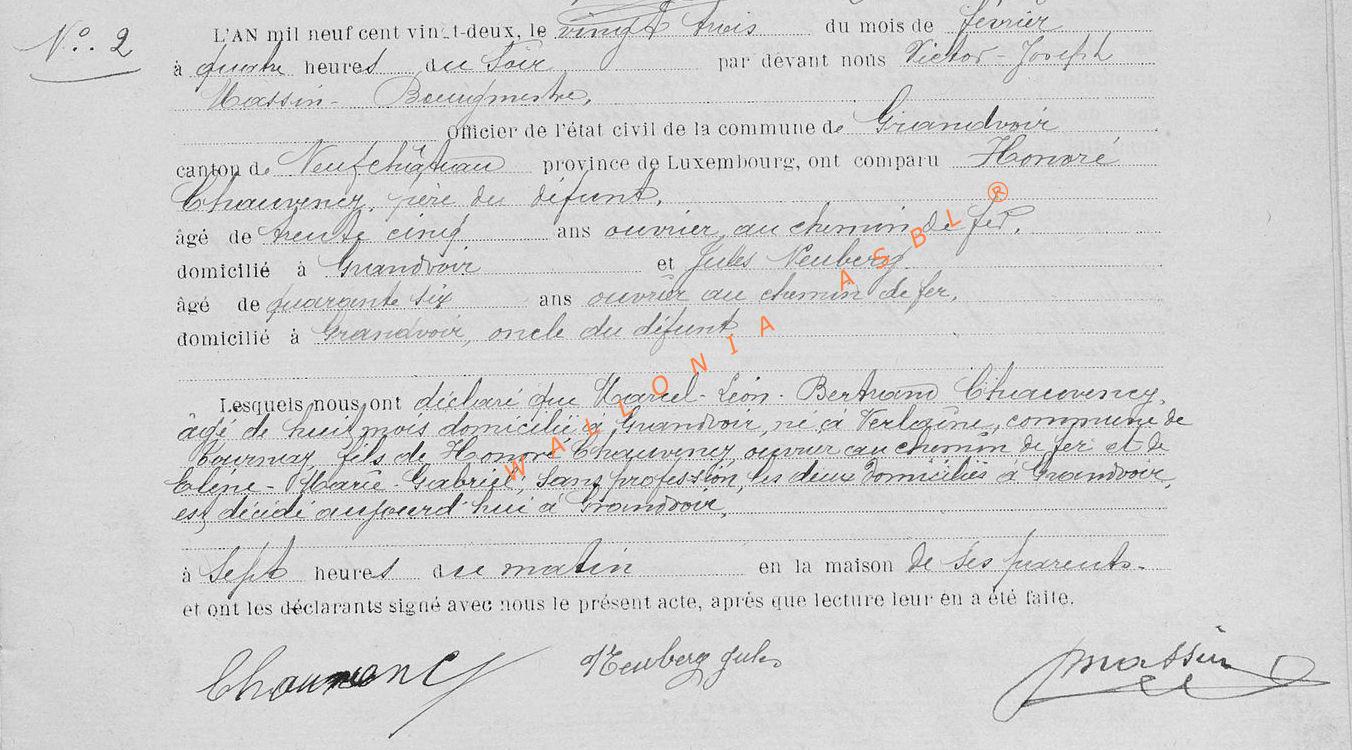 N°. 2
L'AN mil neuf cent vingt-deux, le vingt trois du mois de février
à quatre heures du soir par devant nous Victor-Joseph
Massin- Bourgmestre,
officier de l'état civil de la commune de Grandvoir
canton de Neufchâteau province de Luxembourg, ont comparu Honoré
Chauvency, père du défunt,
âgé de trente cinq ans ouvrier au chemin de fer,
domicilié à Grandvoir et Jules Neuberg
âgé de quarante six ans ouvrier au chemin de fer,
domicilié à Grandvoir, oncle du défunt
Lesquels nous ont déclaré que Marcel-Léon-Bertrand Chauvency,
âgé de huit mois domicilié à Grandvoir, né à Verlezine, commune de
Tournay, fils de Honoré Chauvency ouvrier au chemin de fer et de
Marie Gabriel, sans profession, les deux domiciliés à Grandvoir,
est décédé aujourd'hui à Grandvoir,
à sept heures du matin en la maison de ses parents.
et ont les déclarants signé avec nous le présent acte, après que lecture leur en a été faite.
Chauvency Neuberg Jules Massin
WALLONIA ASBL ®